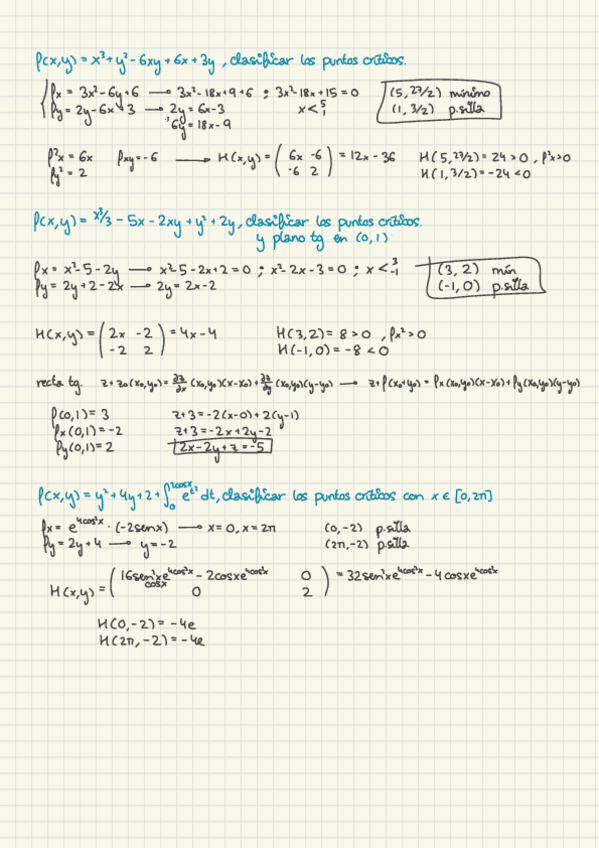 f(x,y) = x³ + y² - 6xy + 6x + 3y , clasificar los puntos críticos.
fx = 3x² - 6y + 6 → 3x² - 18x + 9 + 6 ; 3x² - 18x + 15 = 0
fy = 2y - 6x + 3 → 2y = 6x - 3 x < 5 1
6y = 18x - 9
(5, 27/2) mínimo
(1, 3/2) p.silla
f²x = 6x fxy = -6 → H(x,y) = ( 6x -6 -6 2 ) = 12x - 36 H(5, 27/2) = 24 > 0 , f²x > 0
fy² = 2 H(1, 3/2) = -24 < 0
f(x,y) = x³/3 - 5x - 2xy + y² + 2y , clasificar los puntos críticos.
y plano tg en (0,1)
fx = x² - 5 - 2y → x² - 5 - 2x + 2 = 0 ; x² - 2x - 3 = 0 ; x < 3 -1
fy = 2y + 2 - 2x → 2y = 2x - 2
(3, 2) mín
(-1, 0) p.silla
H(x,y) = ( 2x -2 -2 2 ) = 4x - 4 H(3,2) = 8 > 0 , fx² > 0
H(-1,0) = -8 < 0
recta tg. z + z₀(x₀,y₀) = ∂z/∂x (x₀,y₀)(x-x₀) + ∂z/∂y (x₀,y₀)(y-y₀) → z + f(x₀+y₀) = fx(x₀,y₀)(x-x₀) + fy(x₀,y₀)(y-y₀)
f(0,1) = 3 z + 3 = -2(x-0) + 2(y-1)
fx(0,1) = -2 z + 3 = -2x + 2y - 2
fy(0,1) = 2 2x - 2y + z = -5
f(x,y) = y² + 4y + 2 + ∫₀^2cosx e^t² dt , clasificar los puntos críticos con x ∈ [0, 2π]
fx = e^4cos²x · (-2senx) → x = 0, x = 2π (0, -2) p.silla
fy = 2y + 4 → y = -2 (2π, -2) p.silla
H(x,y) = ( 16sen²x e^4cos²x cosx - 2cosx e^4cos²x 0 0 2 ) = 32sen²x e^4cos²x - 4cosx e^4cos²x
H(0, -2) = -4e
H(2π, -2) = -4e